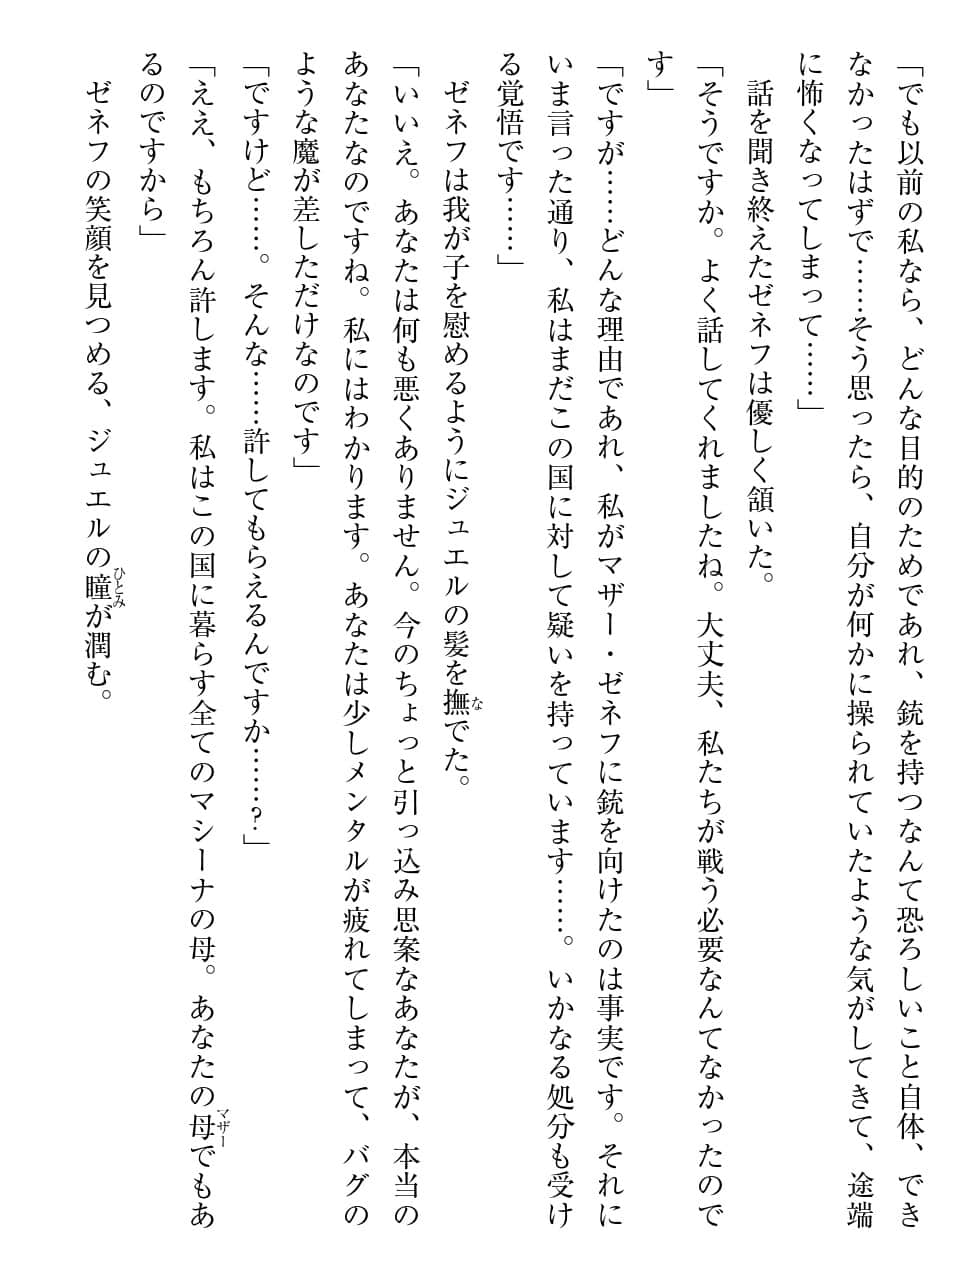 「でも以前の私なら、どんな目的のためであれ、銃を持つなんて恐ろしいこと自体、でき
なかったはずで……そう思ったら、自分が何かに操られていたような気がしてきて、途端
に怖くなってしまって……」
話を聞き終えたゼネフは優しく頷いた。
「そうですか。よく話してくれましたね。大丈夫、私たちが戦う必要なんてなかったので
す」
「ですが……どんな理由であれ、私がマザー・ゼネフに銃を向けたのは事実です。それに
いま言った通り、私はまだこの国に対して疑いを持っています……。いかなる処分も受け
る覚悟です……」
ゼネフは我が子を慰めるようにジュエルの髪を撫でた。
「いいえ。あなたは何も悪くありません。今のちょっと引っ込み思案なあなたが、本当の
あなたなのですね。私にはわかります。あなたは少しメンタルが疲れてしまって、バグの
ような魔が差しただけなのです」
「ですけど……。そんな……許してもらえるんですか……？」
「ええ、もちろん許します。私はこの国に暮らす全てのマシーナの母。あなたの母でもあ
るのですから」
ゼネフの笑顔を見つめる、ジュエルの瞳が潤む。